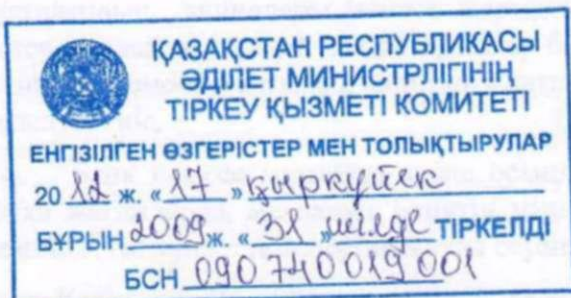 ҚАЗАҚСТАН РЕСПУБЛИКАСЫ
ӘДІЛЕТ МИНИСТРЛІГІНІҢ
ТІРКЕУ ҚЫЗМЕТІ КОМИТЕТІ
ЕНГІЗІЛГЕН ӨЗГЕРІСТЕР МЕН ТОЛЫҚТЫРУЛАР
20 12 ж. «17» қыркүйек
БҰРЫН 2009 ж. «31» шілде ТІРКЕЛДІ
БСН 090740019001